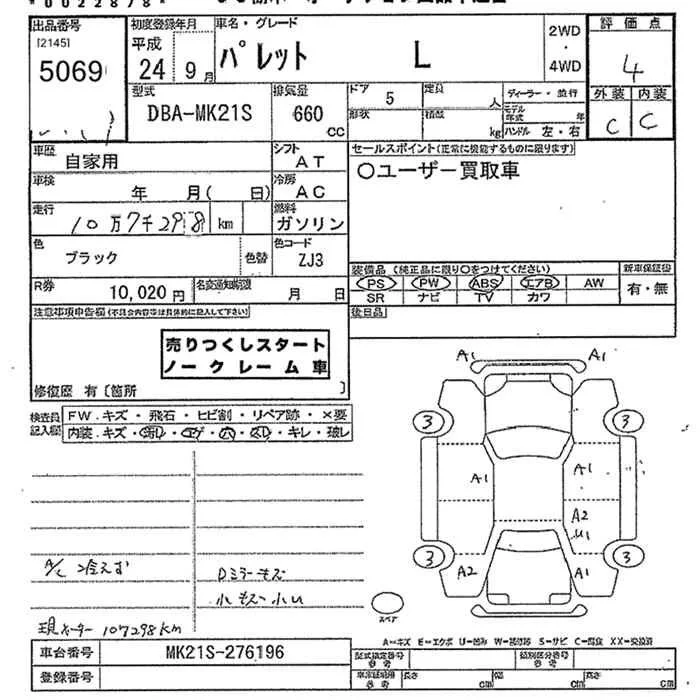 *0022878*
出品番号
[2145]
5069
初度登録年月
平成
24 9月
車名・グレード
パレット L
2WD
・
4WD
評価点
4
外装 内装
C C
型式
DBA-MK21S
排気量
660
CC
ドア 5
定員 人
形状
積載 kg
ディーラー・並行
モデル年式 年
ハンドル 左・右
車歴
自家用
シフト
AT
セールスポイント(正常に機能するものに限ります)
○ユーザー買取車
車検
年 月( 日)
冷房
AC
走行
10万7千298 km
燃料
ガソリン
色
ブラック
色替
色コード
ZJ3
装備品(純正品に限り○をつけてください)
新車保証書
PS PW ABS エアB AW
有・無
SR ナビ TV カワ
R券
10,020円
名変通知期限
月 日
後日品
注意事項申告欄(不具合内容等は具体的に記入して下さい)
売りつくしスタート
ノークレーム車
修復歴 有〔箇所 〕
検査員記入欄
FW.キズ・飛石・ヒビ割・リペア跡・×要
内装.キズ・
・キレ・破レ
A1 A1
3 3
A1 A1
A2
U1
3 3
A2 A1
A/C 冷えず
Dミラーキズ
小キズ・小U
現メーター 107298km
スペア
A=キズ E=エクボ U=凹み W=補修跡 S=サビ C=腐食 XX=交換済
車台番号
MK21S-276196
型式指定番号
参考
類別区分番号
参考
登録番号
車庫証明用
参考
長さ cm
幅 cm
高さ cm